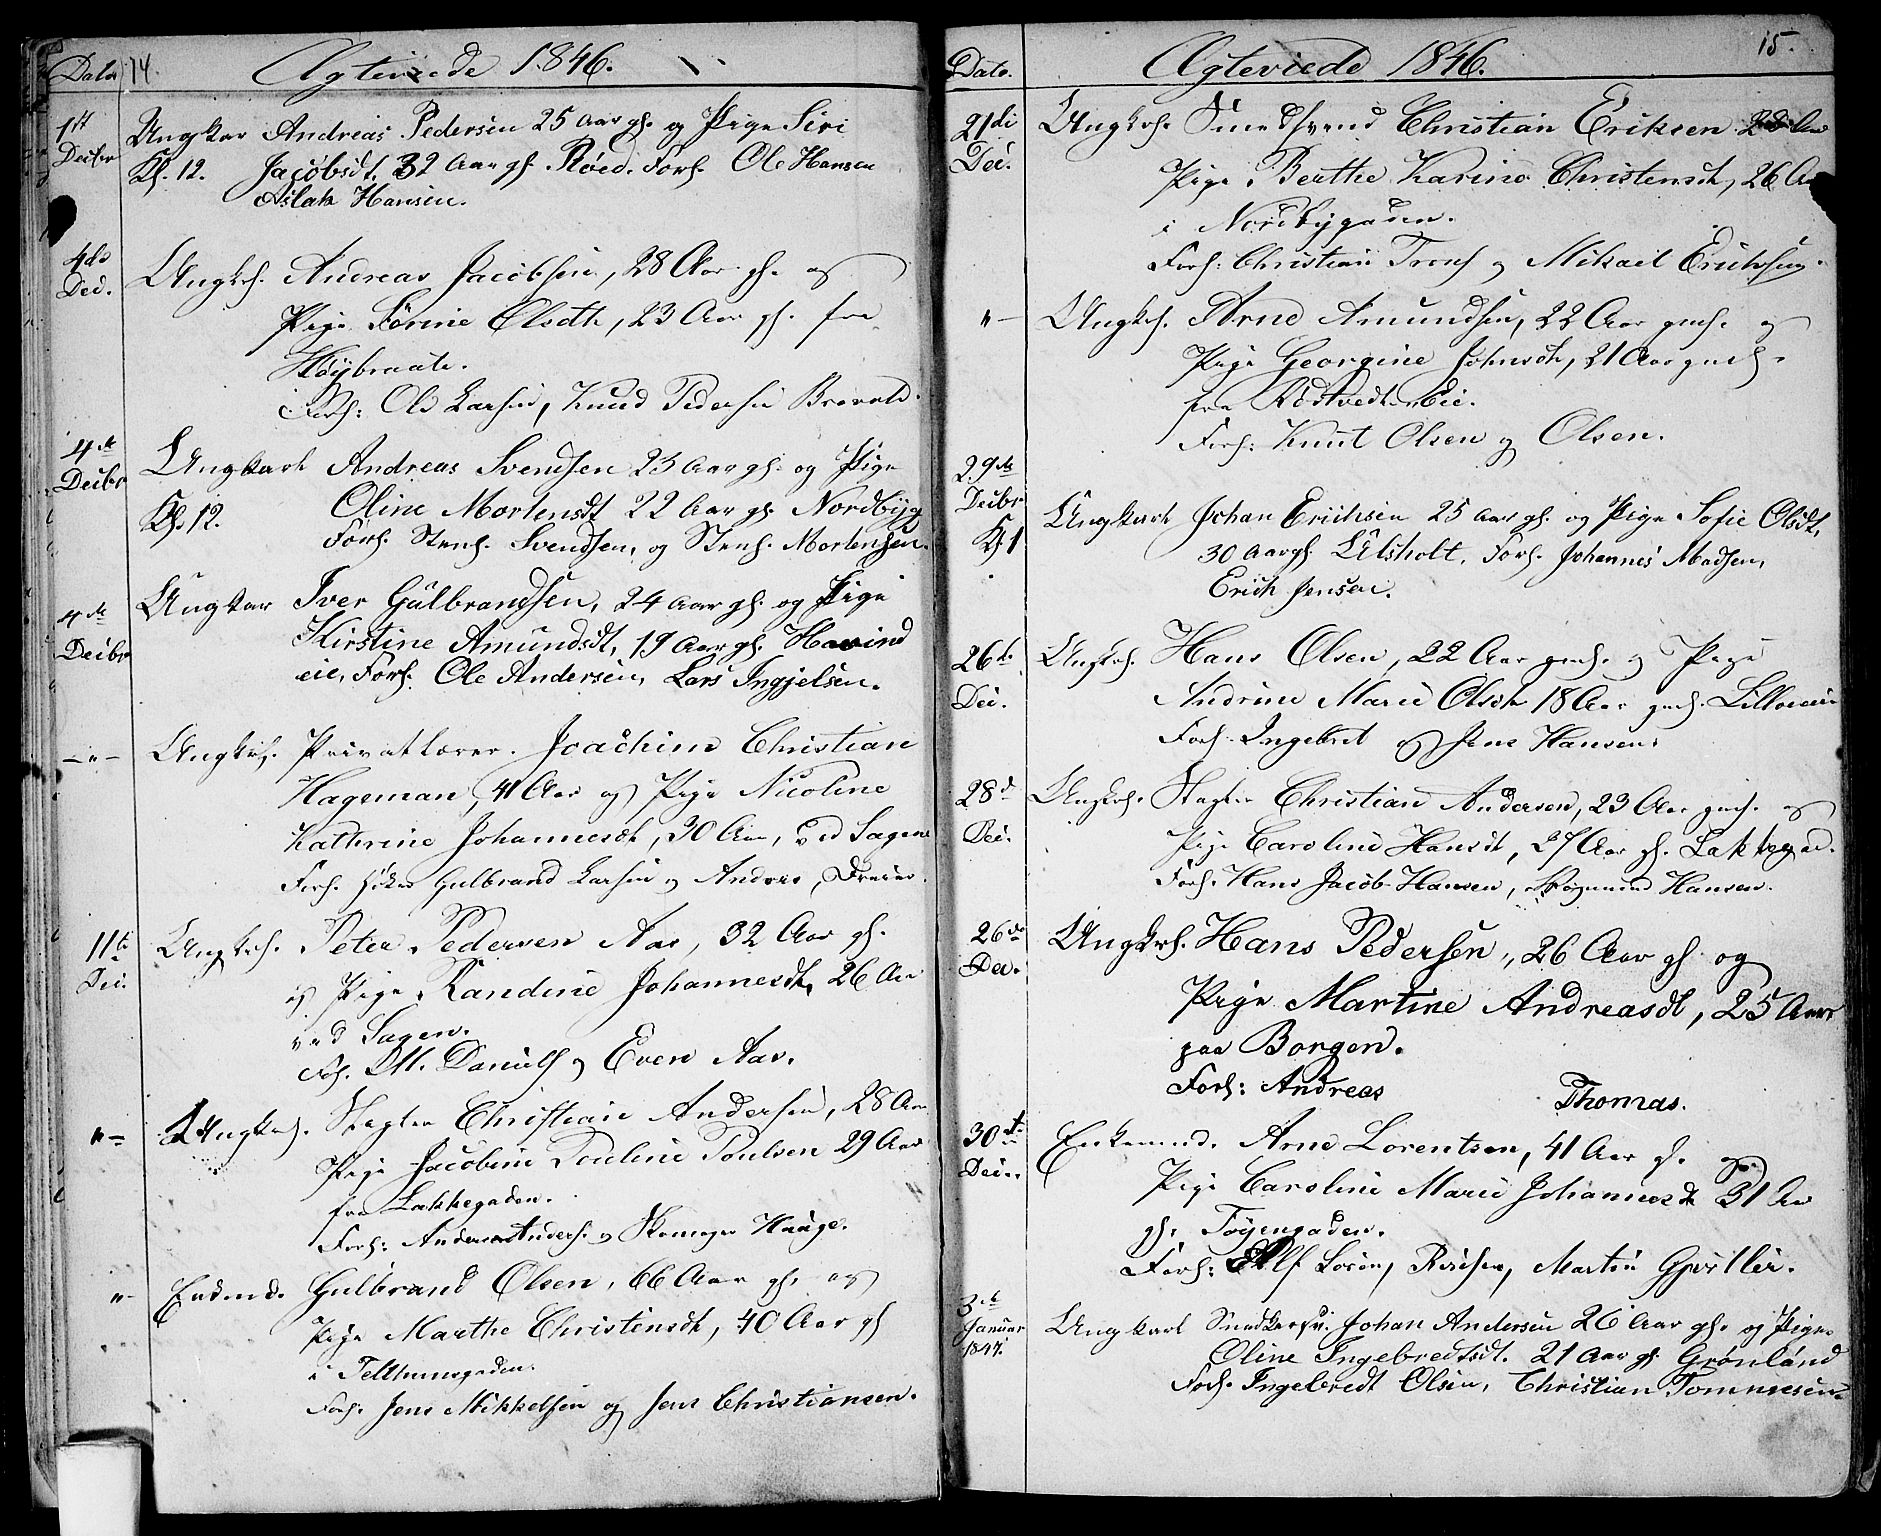 Dato 14. Ægteviede 1846.
1st Decbr Ungkar Andreas Pedersen 25 Aar gl. og Pige Siri
Kl. 12. Jacobsdt. 32 Aar gl. Røed. Forl. Ole Hansen
Aslak Hansen.
4de Dec. Ungkrl. Andreas Jacobsen, 28 Aar gl. og
Pige Førine Olsdtr, 23 Aar gl. fra
Høybraate.
Forl: Ole Larsen, Knud Pedersen
4de Decbr Ungkarl Andreas Svendsen 23 Aar gl. og Pige
Kl. 12. Oline Mortensdt 22 Aar gl. Nordbyg
Forl. Stenh. Svendsen, og Stenh. Mortensen.
4de Decbr Ungkar Iver Gulbrandsen, 24 Aar gl. og Pige
Kirstine Amundsdt, 19 Aar gl. Hovind
eie, Forl. Ole Andersen, Lars Ingjelsen.
— " — Ungkrl. Privatlærer. Joachim Christian
Hageman, 41 Aar og Pige Nicoline
Kathrine Johannesdt, 30 Aar, ved Sagene
Forl. Gulbrand Larsen og Andres, Dreier.
11te Dec. Ungkrl. Peter Pedersen Aas, 32 Aar gl.
og Pige Randine Johannesdt, 26 Aar
ved Sagen.
Fol. M. Daniels og Even Aas.
" — Ungkrl. Slagter Christian Andersen, 28 Aar
Pige Jacobine Pouline Poulsen 29 Aar
fra Lakkegaden.
Forl: Anders Anders. og Skomager Hauge.
" — Enkmd. Gulbrand Olsen, 66 Aar gl. og
Pige Marthe Christensdt, 40 Aar gl
i Telthusgaden.
Forl. Jens Mikkelsen og Jens Christiansen.
Dato. Ægteviede 1846. 15.
21de Dec. Ungkrl. Smedsvend Christian Eriksen 28 Aar
Pige Berthe Karine Christensdt, 26 Aar
i Nordbygaden.
Forl: Christian Trons og Mikael Erichsen.
" — Ungkrl. Arne Amundsen, 22 Aar gml. og
Pige Georgine Johnsdt, 21 Aar gml.
fra Rødtvedt Eie.
Forl: Knut Olsen og Olsen.
29de Decbr Kl. 1 Ungkarl Johan Erichsen 25 Aar gl. og Pige Sofie Olsdt,
30 Aar gl. Ulsholt. Forl. Johannes Madsen,
Erich Jensen.
26de Dec. Ungkrl. Hans Olsen, 22 Aar gml. og Pige
Andrine Marie Olsdt 18 Aar gml.
Forl. Ingebret og Jens Hansen.
28de Dec. Ungkrl. Slagter Christian Andersen, 23 Aar gml. og
Pige Caroline Hansdt, 27 Aar gl. Lakkegad.
Forl. Hans Jacob Hansen, Hansen.
26de Dec. Ungkrl. Hans Pedersen, 26 Aar gl og
Pige Martine Andreasdt, 25 Aar
paa Borgen.
Forl: Andreas Thomas.
30te Dec. Enkemnd. Arne Lorentsen, 41 Aar gl. og
Pige Caroline Marie Johannesdt 31 Aar
gl. Tøyengaden.
Forl: Alf Martin Gjørtler.
3de Januar 1847. Ungkarl Snedkersv. Johan Andersen 26 Aar gl. og Pige
Oline Ingebredtsdt. 21 Aar gl. Grønland
Forl. Ingebredt Olsen, Christian Tommesen.